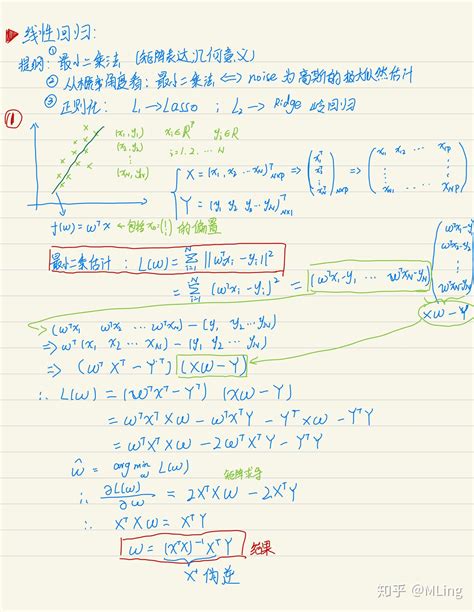 线性回归:
提纲: ① 最小二乘法 (矩阵表达, 几何意义)
② 从概率角度看: 最小二乘法 <=> noise 为高斯的极大似然估计
③ 正则化: L₁→Lasso ; L₂→Ridge 岭回归
①
(x₁, y₁) xᵢ∈Rᵀ yᵢ∈R
(x₂, y₂) i=1.2. ... N
(x_N, y_N)
X = (x₁, x₂ ... x_N)ᵀ_{N×P} => (x₁ᵀ x₂ᵀ ⋮ x_Nᵀ)_{N×P} => (x₁₁ x₁₂ ... x₁p ⋮ x_N₁ ... x_Np)
Y = (y₁ y₂ y₃ ... y_N)ᵀ_{N×1}
f(w) = wᵀx ← 包括 的偏置
最小二乘估计 : L(w) = Σ_{i=1}^{N} ||wᵀxᵢ - yᵢ||²
= Σ_{i=1}^{N} (wᵀxᵢ - yᵢ)² = (wᵀx₁-y₁ ... wᵀx_N-y_N) (wᵀx₁-y₁ wᵀx₂-y₂ ⋮ wᵀx_N-y_N)
XW - Y
(wᵀx₁ wᵀx₂ ... wᵀx_N) - (y₁ y₂ ... y_N)
=> wᵀ(x₁ x₂ ... x_N) - (y₁ y₂ ... y_N)
=> (wᵀXᵀ - Yᵀ) (XW - Y)
∴ L(w) = (wᵀXᵀ - Yᵀ) (XW - Y)
= wᵀXᵀXW - wᵀXᵀY - YᵀXW - YᵀY
= wᵀXᵀXW - 2wᵀXᵀY - YᵀY
ŵ = arg min_w L(w) 矩阵求导
∴ ∂L(w)/∂w = 2XᵀXW - 2XᵀY
∴ XᵀXW = XᵀY
w = (XᵀX)⁻¹XᵀY 结果
X⁺ 伪逆
知乎 @MLing